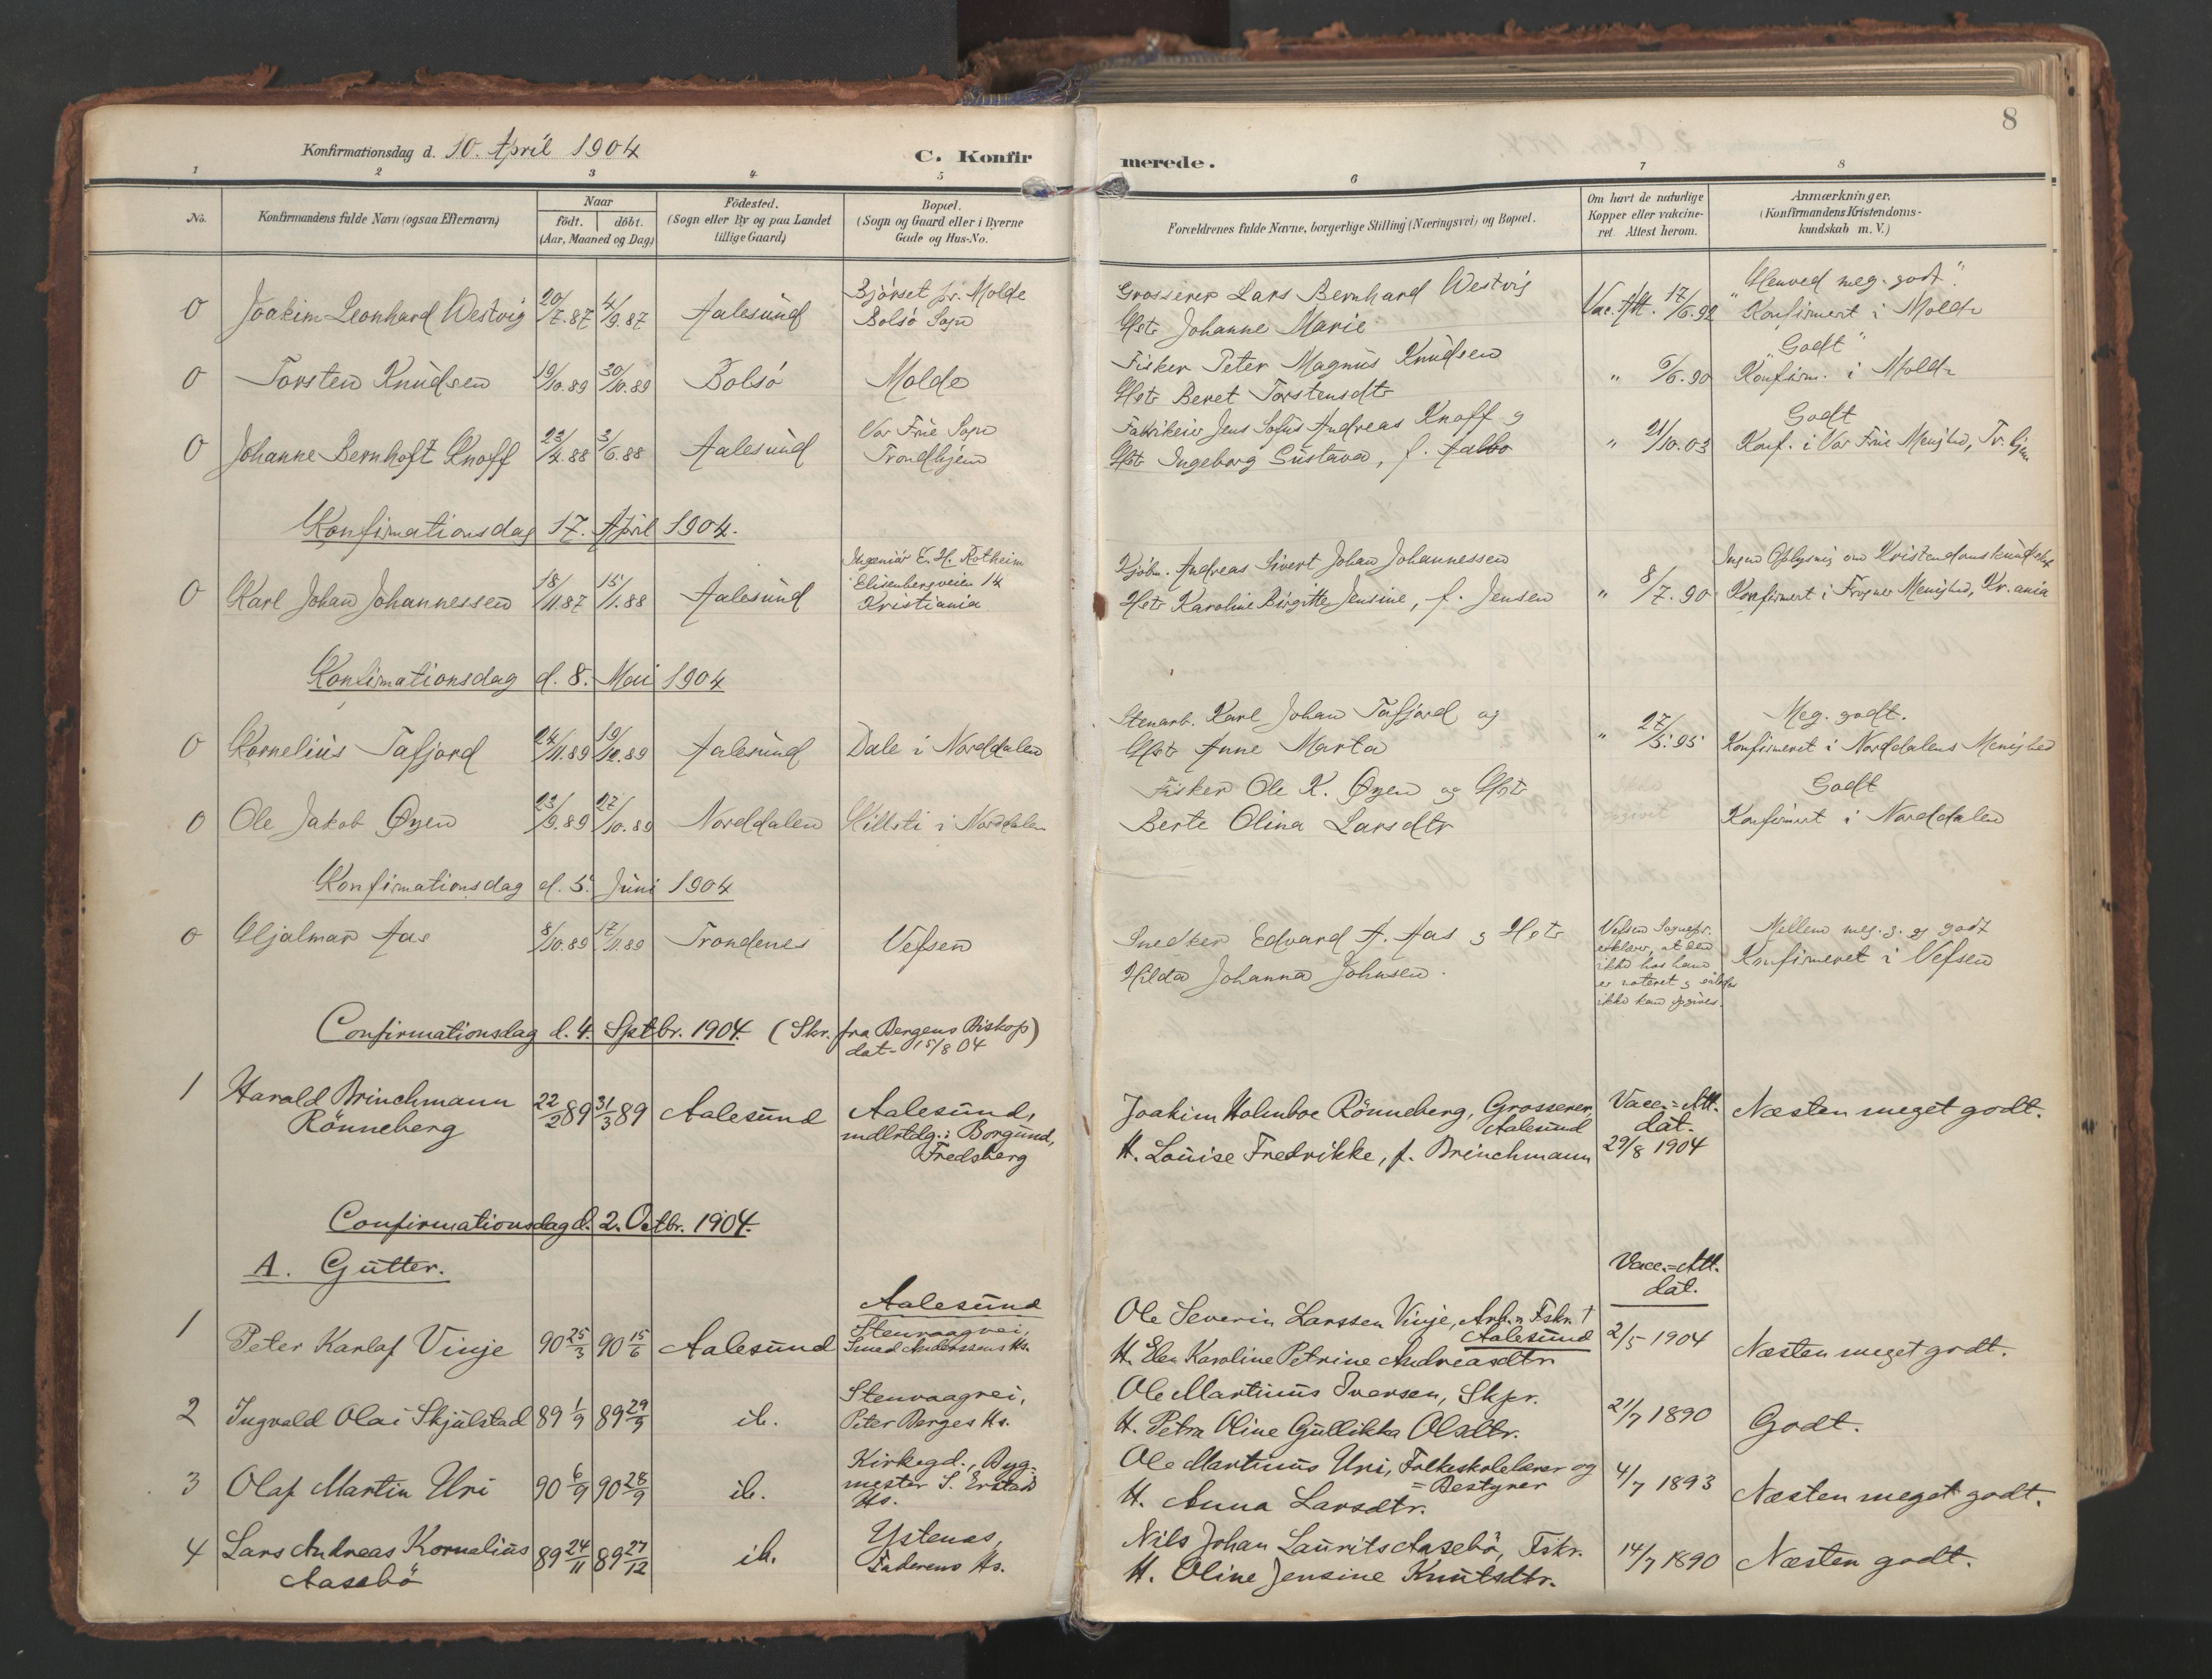 8
Konfirmationsdag d. 10. April 1904
C. Konfirmerede.
1 2 3 4 5 6 7 8
No. Konfirmandens fulde Navn (ogsaa Efternavn) Naar födt. döbt. (Aar, Maaned og Dag) Födested. (Sogn eller By og paa Landet tillige Gaard) Bopæl. (Sogn og Gaard eller i Byerne Gade og Hus-No. Forældrenes fulde Navne, borgerlige Stilling (Næringsvei) og Bopæl. Om havt de naturlige Kopper eller vakcineret. Attest herom. Anmærkninger. (Konfirmandens Kristendomskundskab m. V.)
0 Joakim Leonhard Westvig 20/7.87 4/9.87 Aalesund Bjørset pr. Molde
Bolsø Sogn
Grosserer Lars Bernhard Westvig
Hst Johanne Marie
Vac. Att. 17/6.92 "Henved meg. godt."
Konfirmert i Molde
0 Torsten Knudsen 19/10.89 30/10.89 Bolsø Molde
Fisker Peter Magnus Knudsen
Hst Beret Torstensdtr
" 6/6.90 "Godt"
Konfirm. i Molde
0 Johanne Bernhoft Knoff 23/4.88 3/6.88 Aalesund Vor Frue Sogn
Trondhjem
Fabrikeier Jens Sofus Andreas Knoff og
Hst Ingeborg Gustava, f. Aalbo
" 21/10.03 Godt
Konf. i Vor Frue Menighed, Tr.hjem
Konfirmationsdag 17. April 1904.
0 Karl Johan Johannessen 18/11.87 15/1.88 Aalesund Ingeniør E. H. Rotheim
Elisenbergveien 14
Kristiania
Kjøbm. Andreas Sivert Johan Johannessen
Hst Karoline Birgitte Jensine, f. Jensen
" 8/7.90 Ingen Oplysnig om Kristendomskundskab
Konfirmert i Frogner Menighed, Kr.ania
Konfirmationsdag d. 8. Mai 1904
0 Kornelius Tafjord 24/11.89 19/12.89 Aalesund Dale i Norddalen
Stenarb. Karl Johan Tafjord og
Hst Anne Marta
" 27/5.95 Meg. godt.
Konfirmeret i Norddalens Menighed
0 Ole Jakob Øyen 23/9.89 27/10.89 Norddalen Hillsti i Norddalen
Fisker Ole K. Øyen og Hst
Berte Olina Larsdtr
Godt
Konfirmert i Norddalen
Konfirmationsdag d. 5. Juni 1904
0 Hjalmar Aas 8/10.89 17/11.89 Trondenes Vefsen
Snedker Edvard A. Aas og Hst
Hilda Johanna Johnsen.
Vefsen Sognepr.
erklærer, at den
ikke hos ham
er noteret og
ikke kan opgives.
Mellem meg. g. og godt
Konfirmeret i Vefsen
Confirmationsdag d. 4. Septbr. 1904. (Skr. fra Bergens Biskop)
dat. 15/8 04
1 Harald Brinchmann
Rönneberg 22/2 89 31/3 89 Aalesund Aalesund,
mdlrtdg.: Borgund,
Fredsberg
Joakim Holmboe Rönneberg, Grosserer,
Aalesund
H. Louise Fredrikke, f. Brinchmann
Vacc.=Att.
dat.
29/8 1904
Næsten meget godt.
Confirmationsdag d. 2. Octbr. 1904.
A. Gutter.
Vacc.=Att.
dat.
1 Peter Karlaf Vinje 90 25/3 90 15/6 Aalesund Aalesund
Stenvaagvei,
Smed Anderssens Hs.
Ole Severin Larssen Vinje, Arb. Fskr. †
Aalesund
H. Elen Karoline Petrine Andreasdtr
2/5 1904 Næsten meget godt.
2 Ingvald Olai Skjulstad 89 1/9 89 29/9 ib. Stenvaagvei,
Peter Berges Hs.
Ole Martinus Iversen, Skpr.
H. Petra Oline Gullikka Olsdtr.
21/7 1890 Godt.
3 Olaf Martin Uri 90 6/9 90 28/9 ib. Kirkegd., Bygmester
S. Erstad
Hs.
Ole Martinus Uri, Folkeskolelærer og
=Bestyrer
H. Anna Larsdtr.
4/7 1893 Næsten meget godt.
4 Lars Andreas Kornelius
Aasebö 89 24/11 89 27/12 ib. Ystenes,
Hs.
Nils Johan Laurits Aasebö, Fskr.
H. Oline Jensine Knutsdtr.
14/7 1890 Næsten godt.